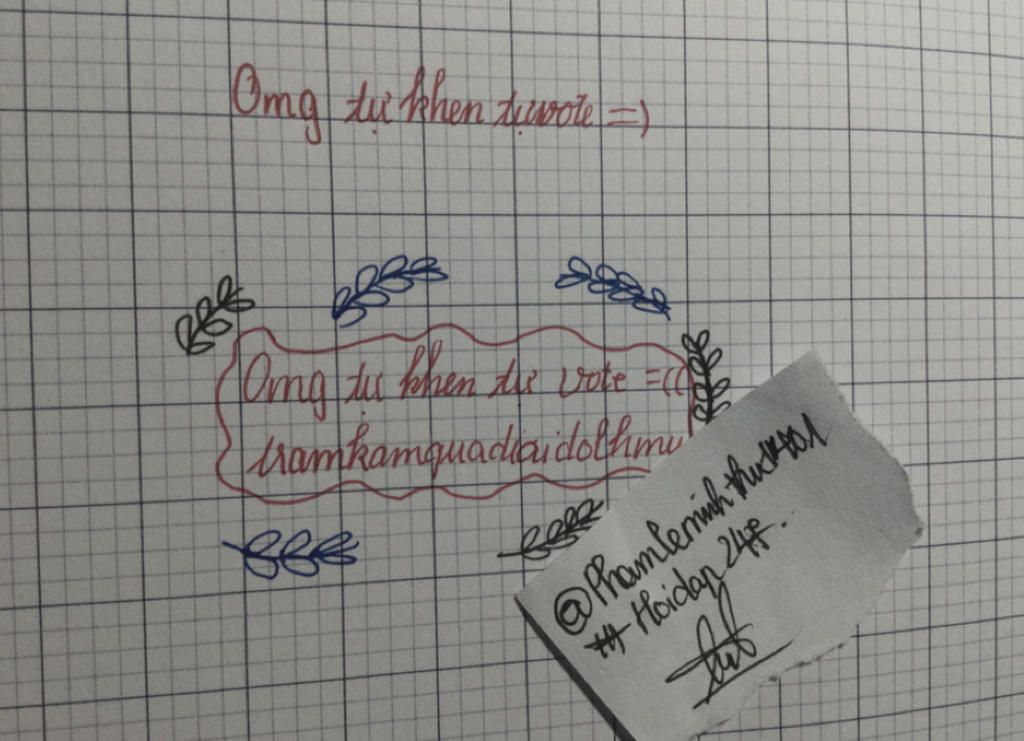 Omg tự khen tự vote =)
Omg tự khen tự vote =((
tramkamquadiaidolhmu
@Phamleminhthu1401
# Hoidap 247.